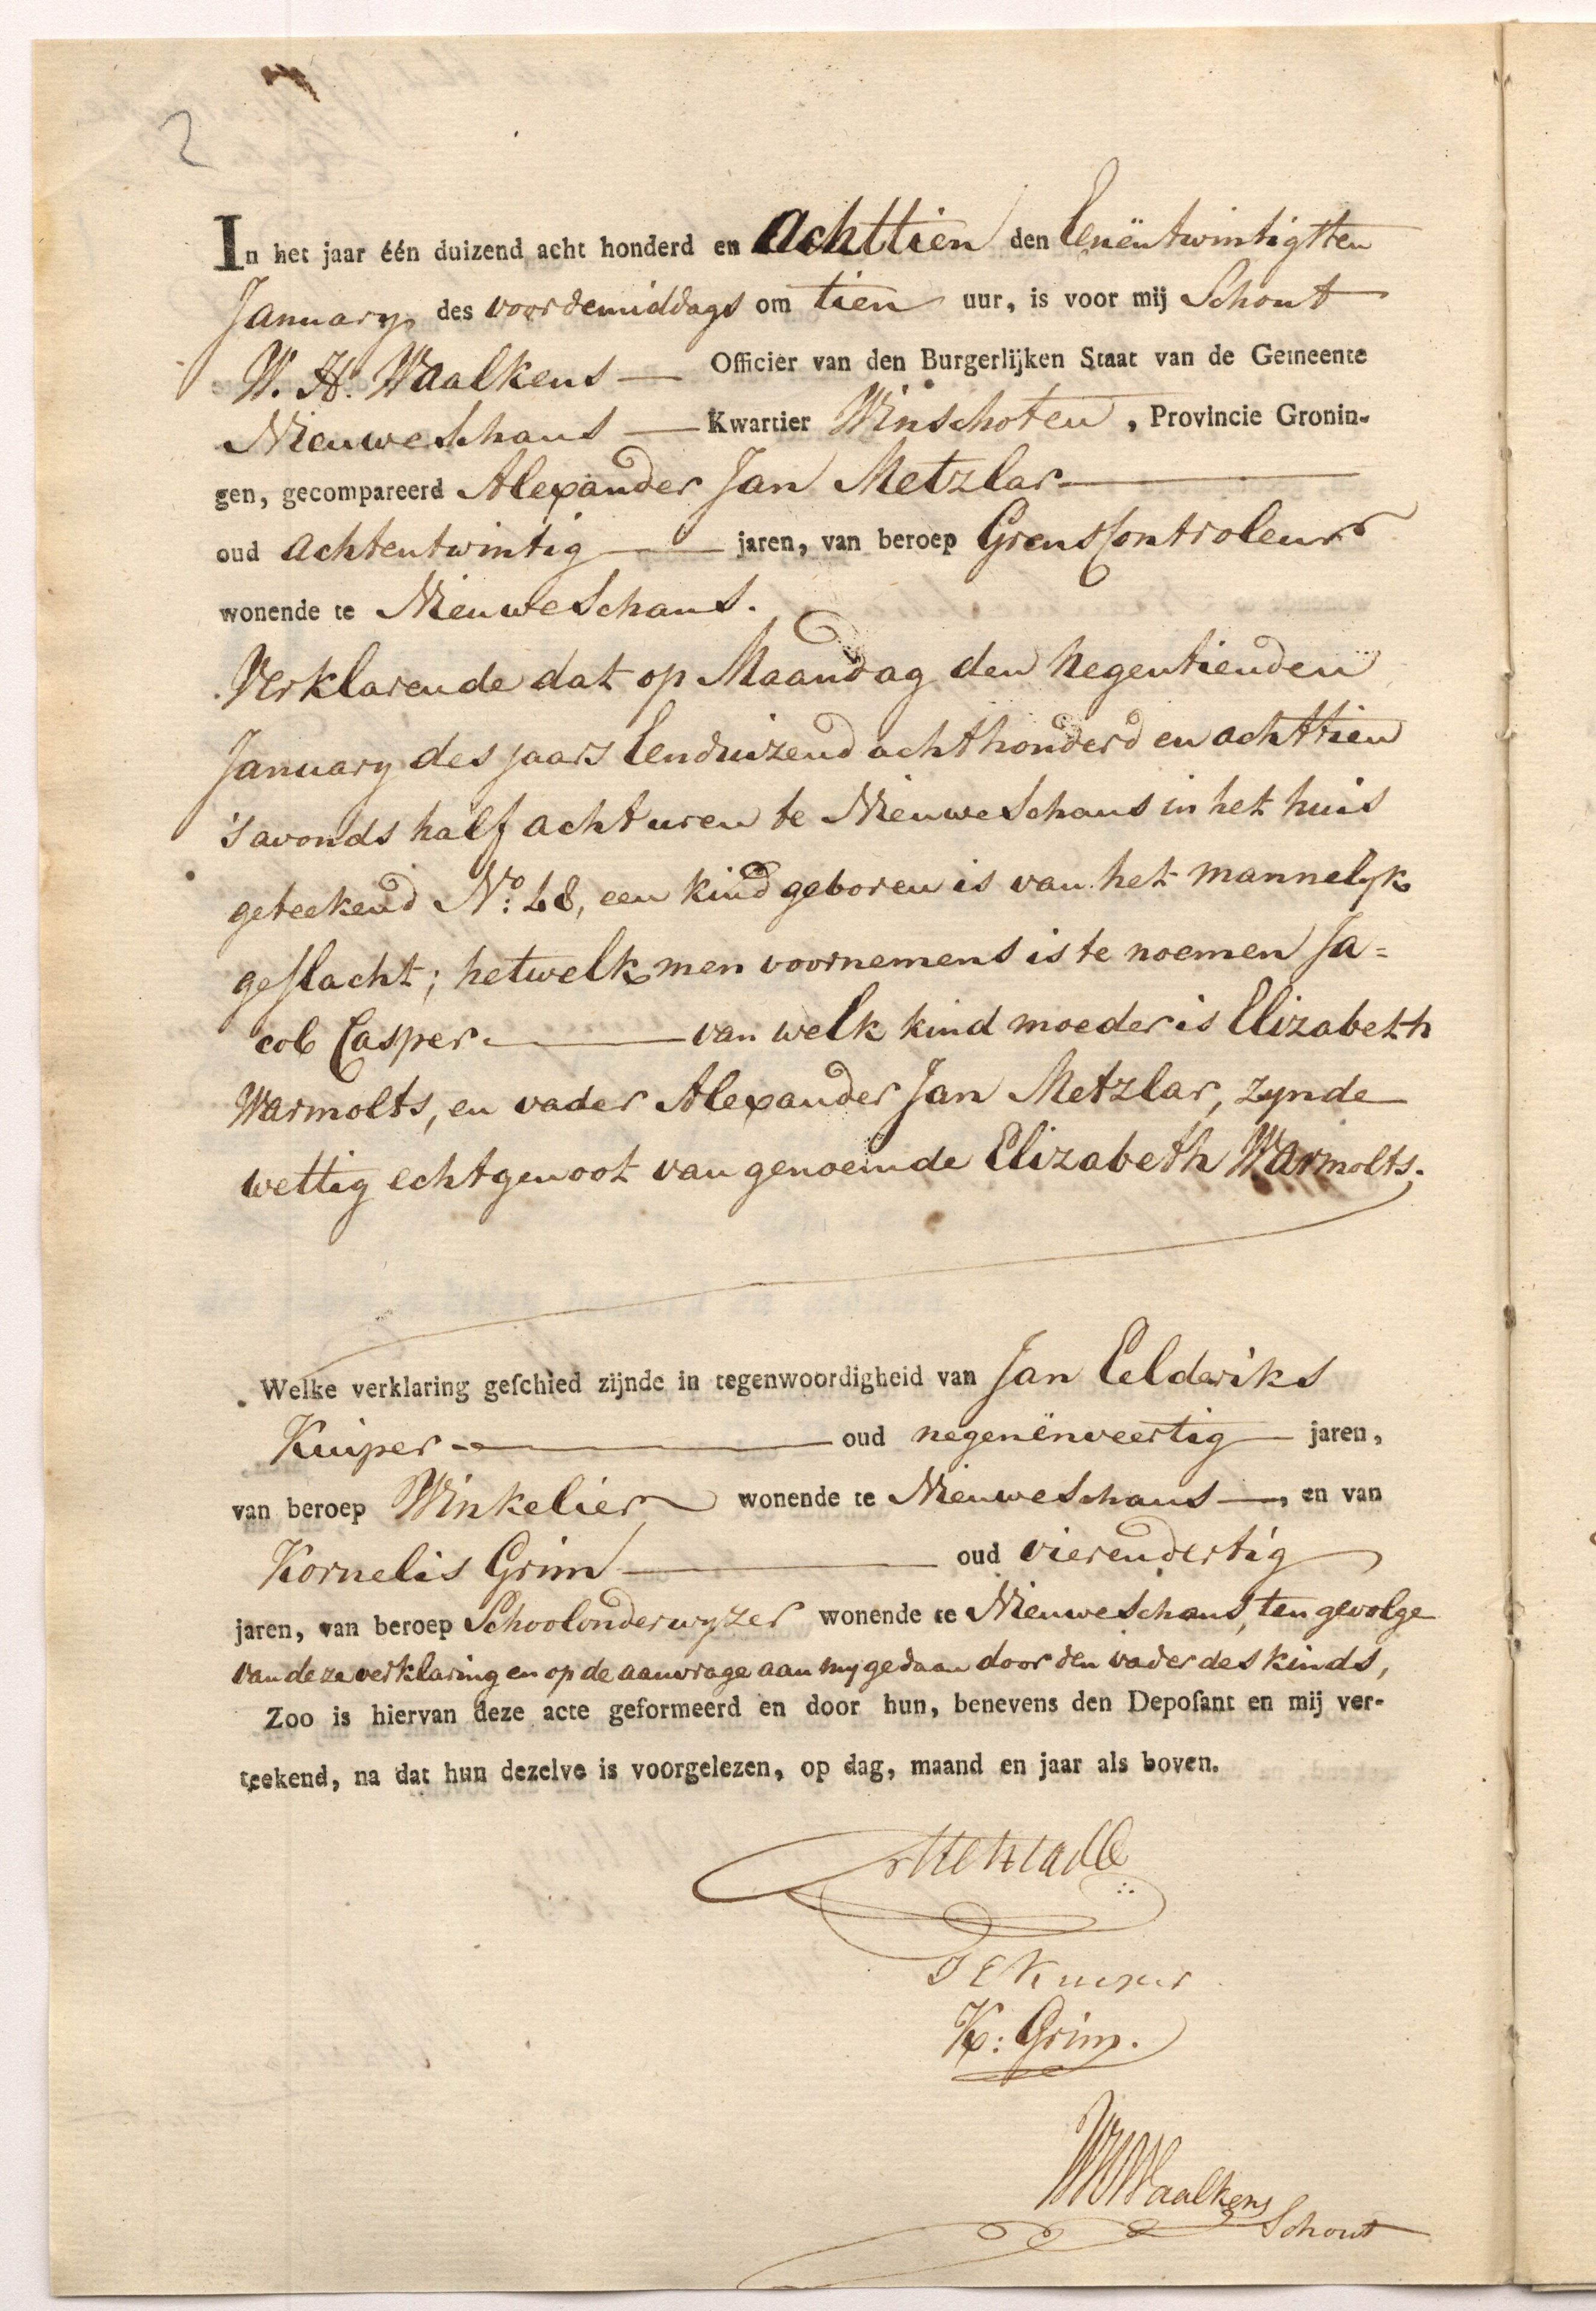 2
In het jaar één duizend acht honderd en Achttien den Eenëntwintigtten
January des voordemiddags om tien uur, is voor mij Schout
W. H. Waalkens — Officier van den Burgerlijken Staat van de Gemeente
Nieuweschans — Kwartier Winschoten, Provincie Gronin-
gen, gecompareerd Alexander Jan Metzlar —
oud achtentwintig — jaren, van beroep GrensControleur
wonende te Nieuweschans.
Verklarende dat op Maandag den Negentienden
January des jaars Eenduizend achthonderd en achttien
's avonds half acht uren te Nieuweschans in het huis
geteekend No: 48, een kind geboren is van het mannelyk
geslacht; hetwelk men voornemens is te noemen Ja=
cob Casper. — van welk kind moeder is Elizabeth
Warmolts, en vader Alexander Jan Metzlar, zynde
wettig echtgenoot van genoemde Elizabeth Warmolts.
Welke verklaring geſchied zijnde in tegenwoordigheid van Jan Eelderiks
Kuiper — oud negenënveertig — jaren,
van beroep Winkelier wonende te Nieuweschans —, en van
Kornelis Grim — oud vierendertig
jaren, van beroep Schoolonderwyzer wonende te Nieuweschans, ten gevolge
van deze verklaring en op de aanvrage aan my gedaan door den vader des kinds,
Zoo is hiervan deze acte geformeerd en door hun, benevens den Depoſant en mij ver-
teekend, na dat hun dezelve is voorgelezen, op dag, maand en jaar als boven.
J E Kuiper
K: Grim.
WHWaalkens
Schout